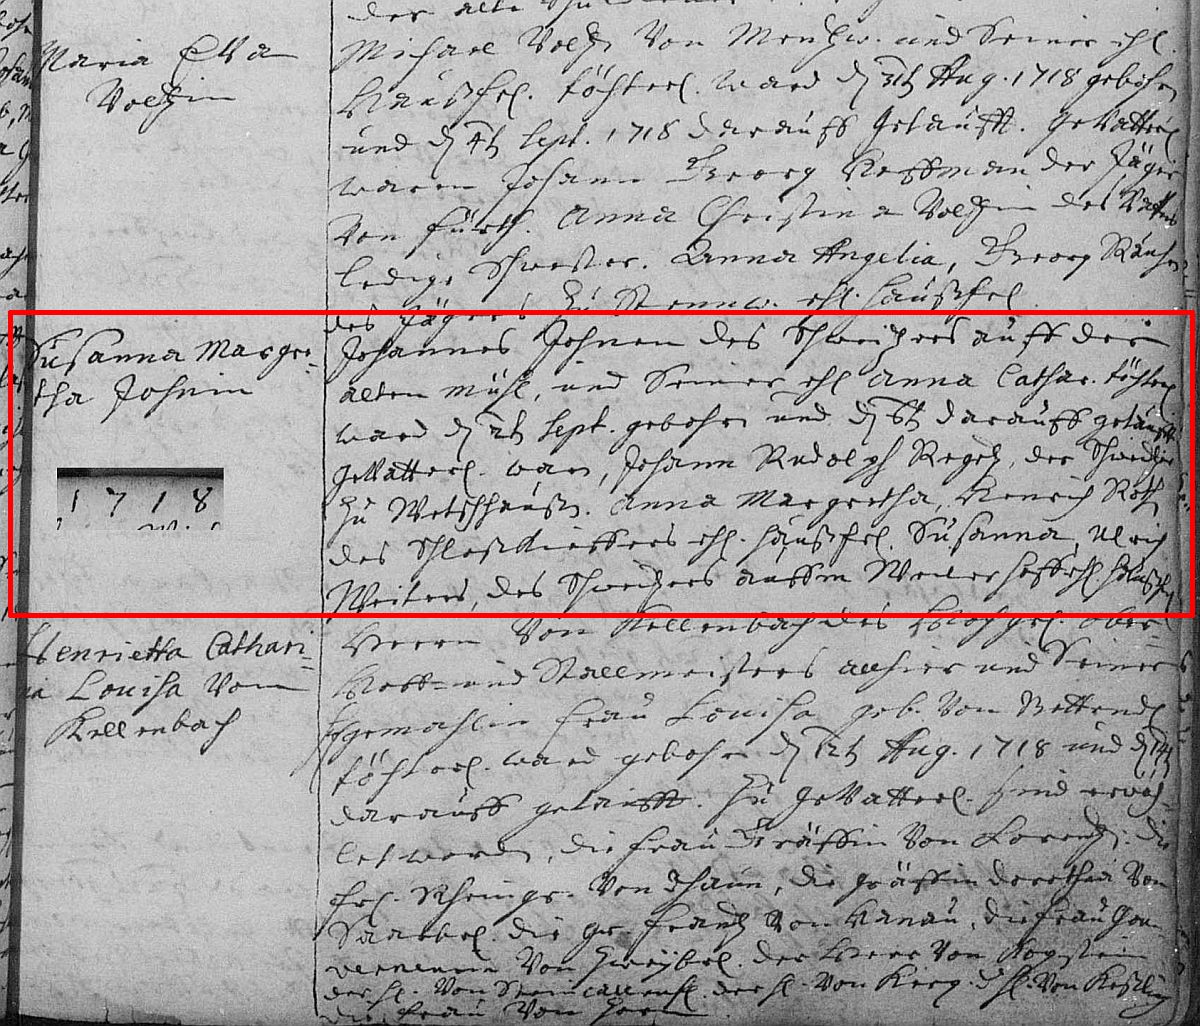 Maria Eva
Voltzin
Michael Voltz Von Menschw. und Seiner ehl.
Haußfr. töchterl. ward d 31t Aug. 1718 gebohrn
und d 4t Sept. 1718 darauff getaufft. gevatterl.
waren Johann Georg Hoffman der Jäger
Von fürth. Anna Christina Voltzin des Vatters
ledige Schwester. Anna Angelia, Georg
des Jägers zu ehl. haußfrl.
Susanna Margre-
tha Johnin
1718
Johannes Johnen des Schweitzers auff der
alten mühl, und Seiner ehl Anna Cathar. töchterl
ward d 2t Sept. gebohrn und d 6t darauff getaufft
gevatterl. warn, Johann Rudolph Regetz, der Schneider
zu Anna Margretha, Henrich Roth
des Schloßkieffers ehl. haußfrl. Susanna, Ulrich
Weiters, des Schweitzers auffm haußfrl.
Henrietta Cathari-
na Louisa Von
Kellenbach
Herrn Von Kellenbach des Hochgrl. Ober-
Hoff- und Stallmeisters alhier und Seiner
Ehgemahlin frau Louisa geb. Von
töchterl. ward gebohrn d 12t Aug. 1718 und d 14t
darauff getaufft. Zu gevatterl. sind erwöh-
let worden, die frau Gräffin Von die
Rheingr. Von Dhaun, die gräffin dorothea Von
Saarbrl. die gr. Von Hanau, die frau Gou-
Von Zweybrl. der Herr Von
der H. Von der H. Von d H. Von
die frau Von